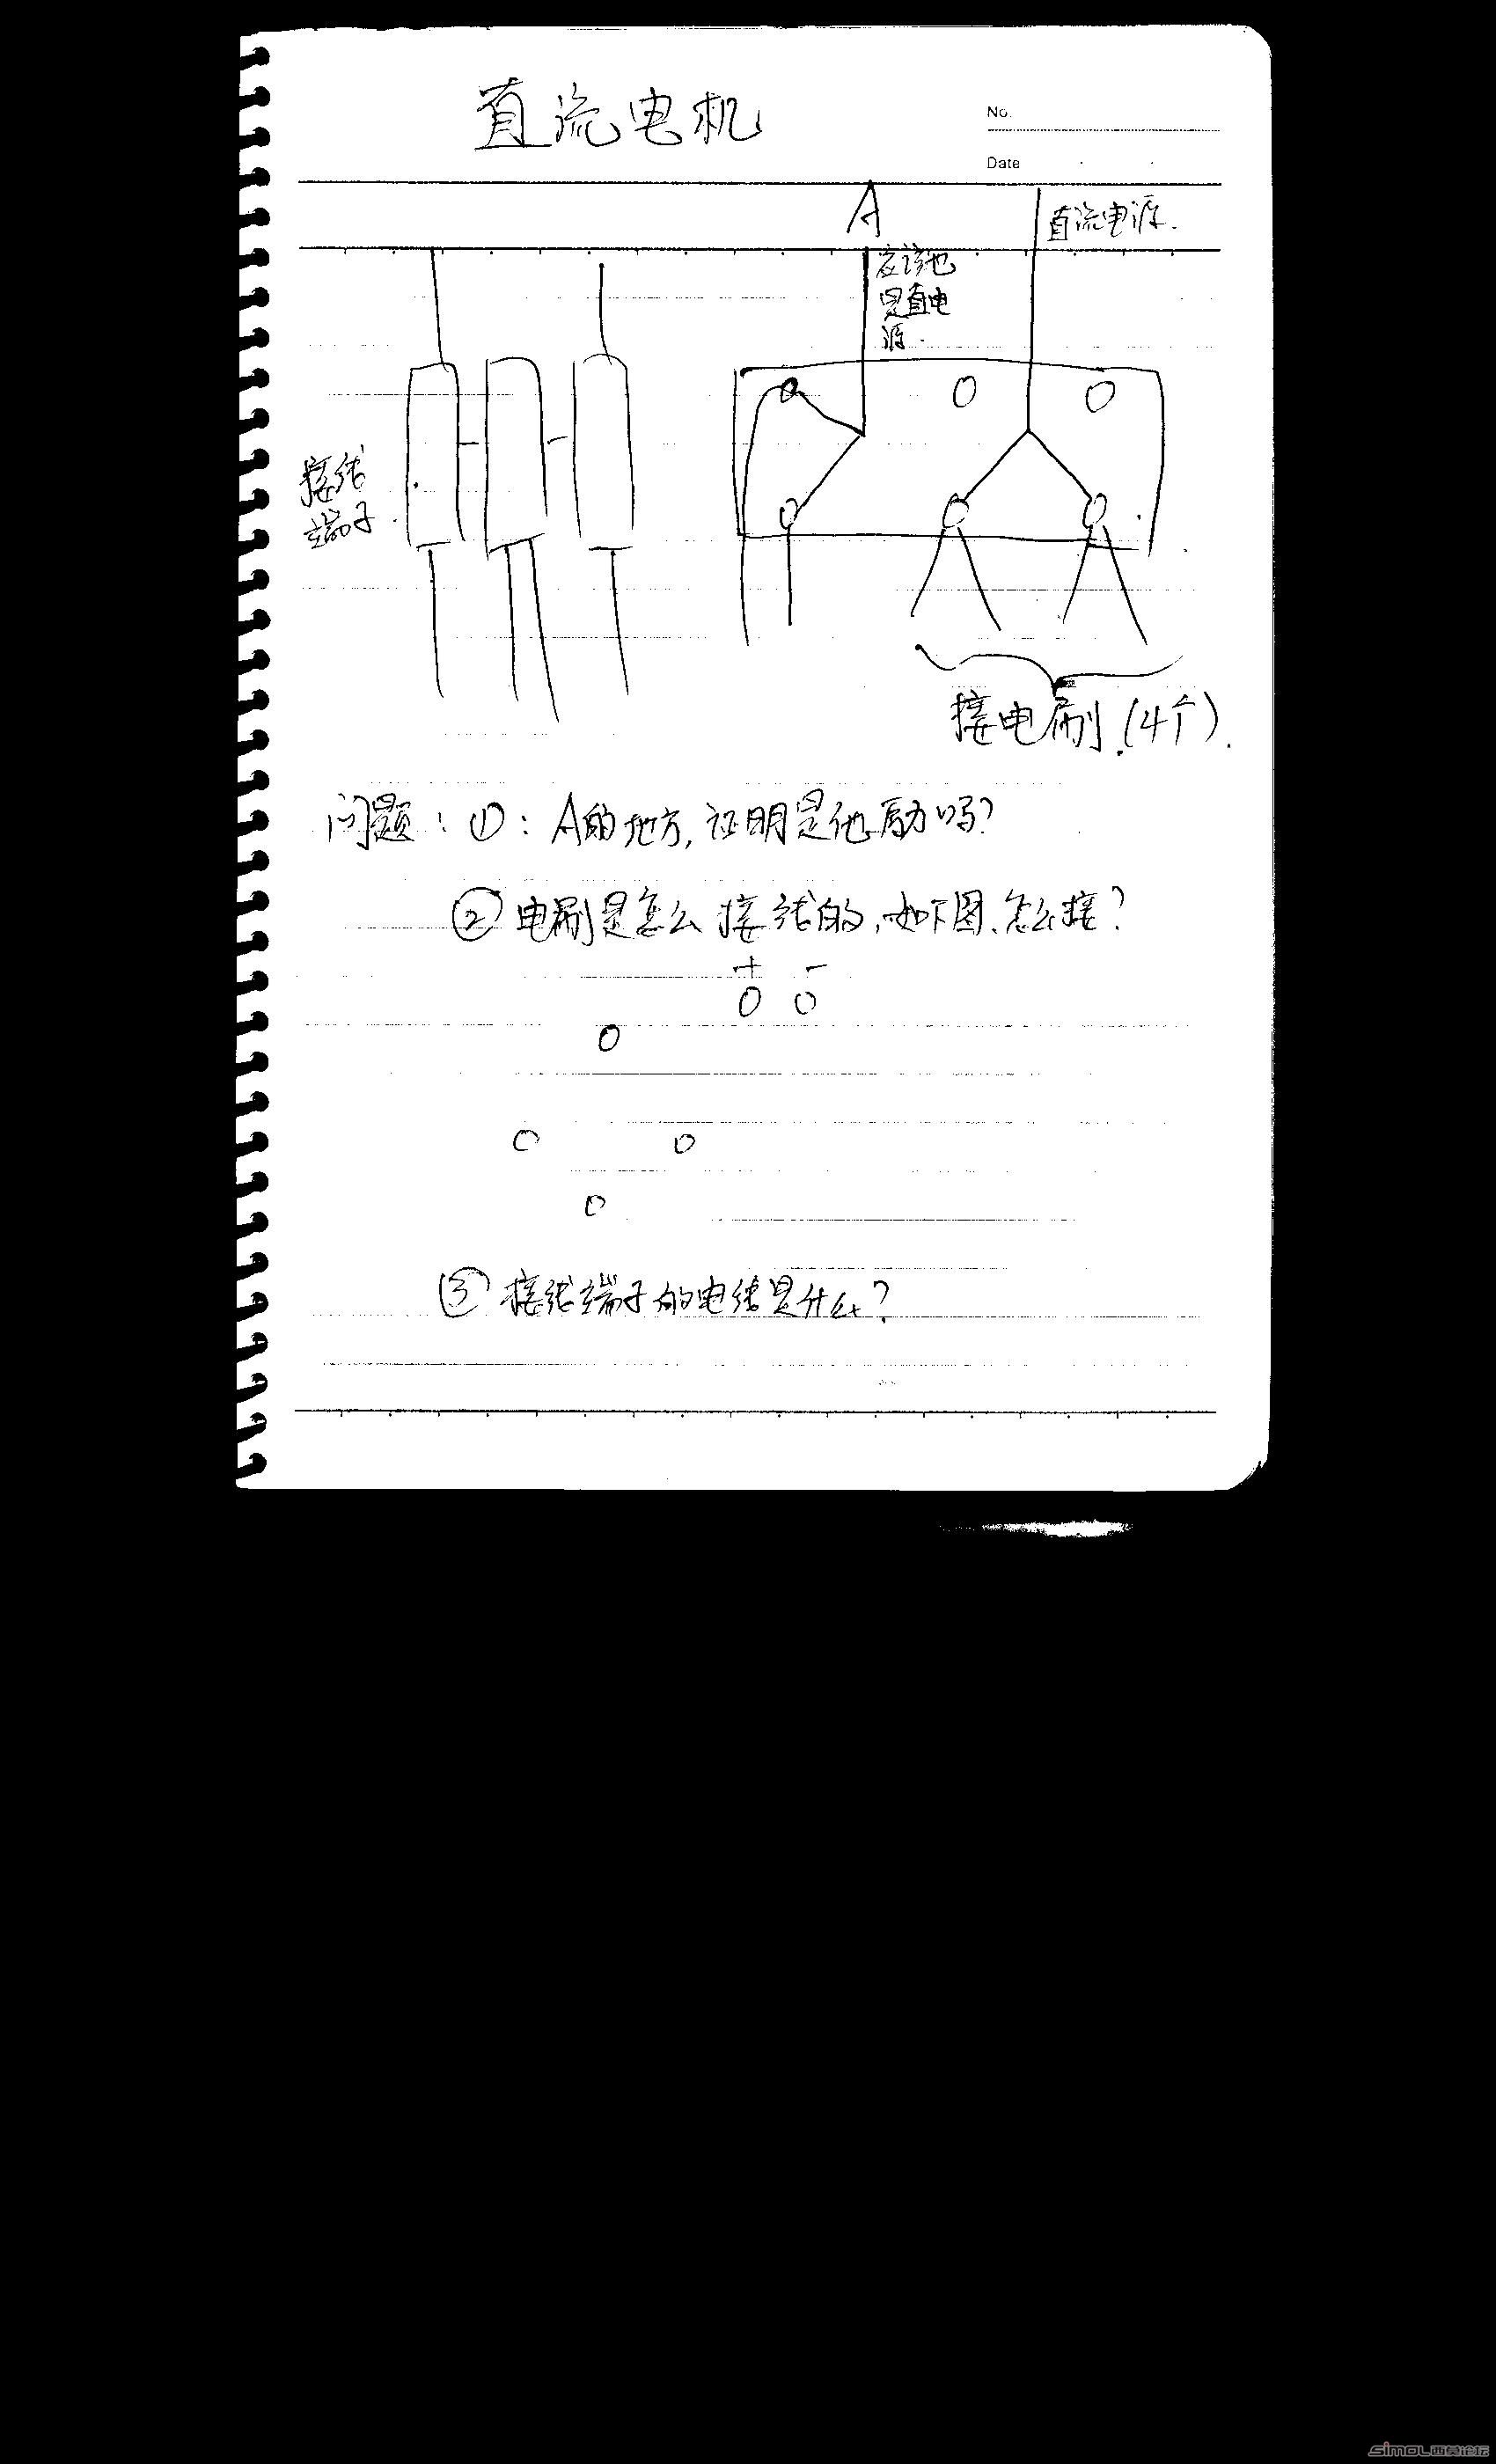 直流电机
No.
Date
A
直流电源.
应该也
是直电
源.
接线
端子.
接电刷.(4个).
问题:①:A的地方,证明是他励吗?
②电刷是怎么接线的,如下图、怎么接?
+ -
③接线端子的电线是什么?
simol西莫论坛